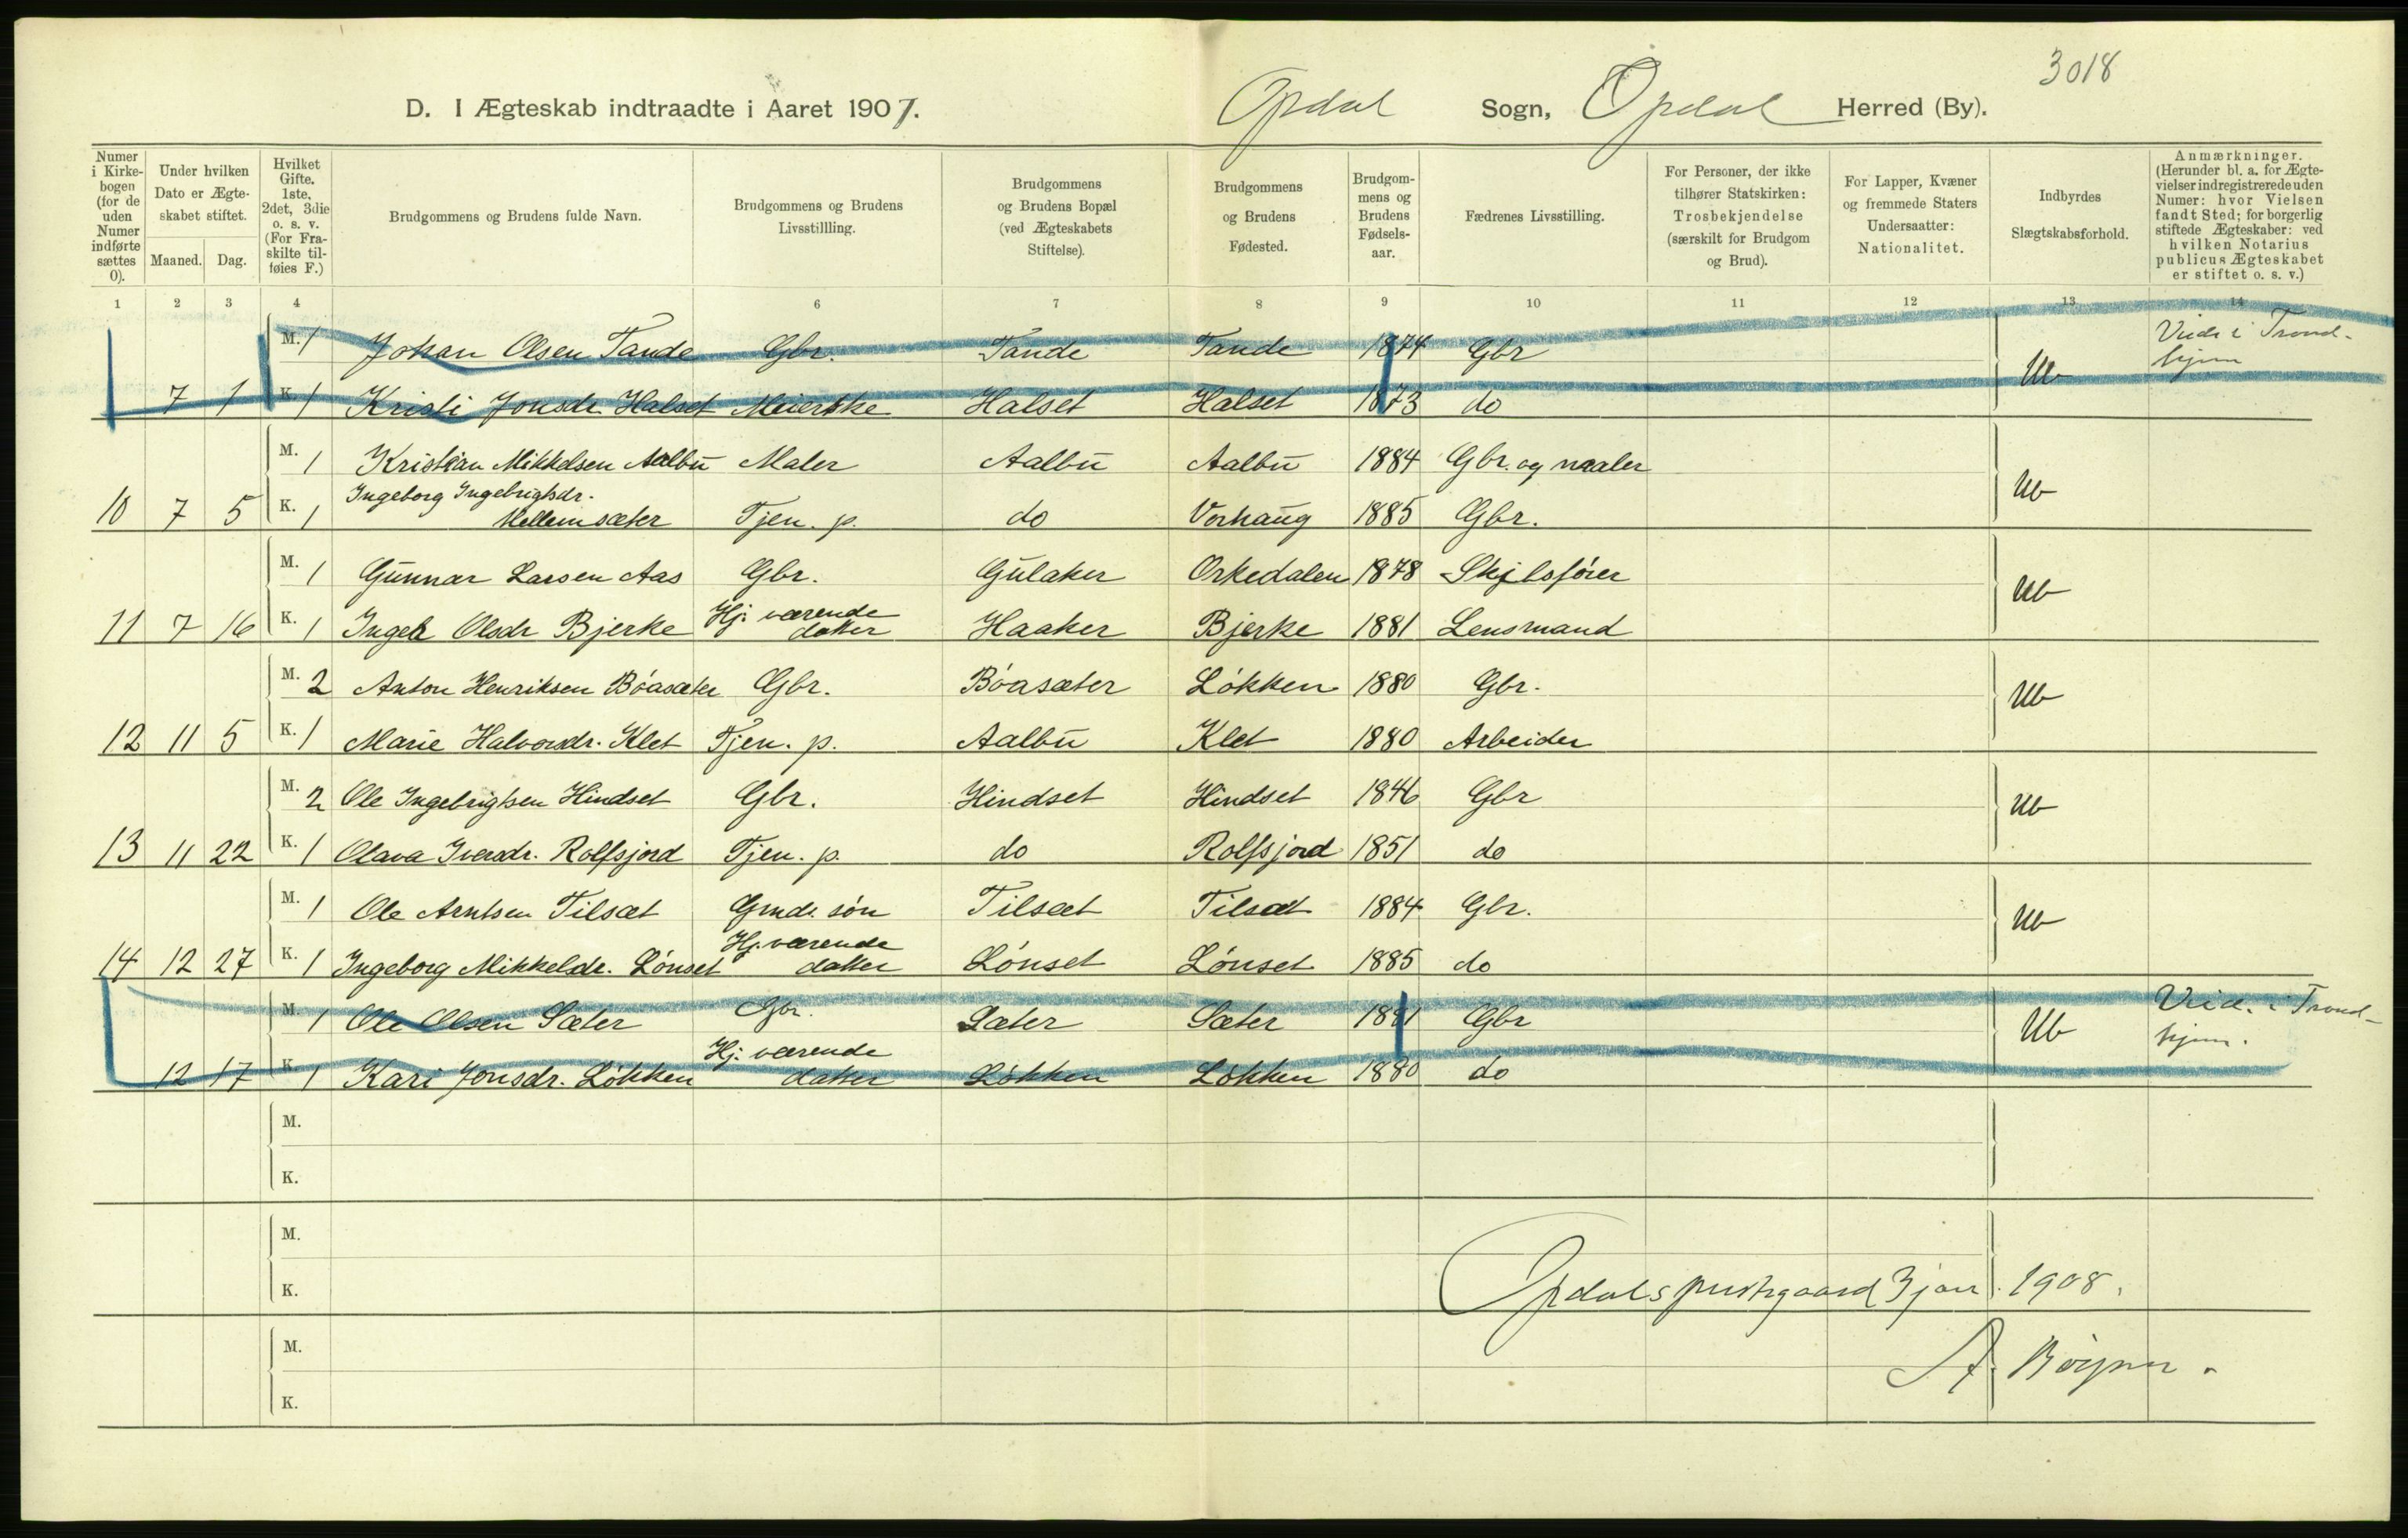 3018
D. I Ægteskab indtraadte i Aaret 1907. Opdal Sogn, Opdal Herred (By).
Numer i Kirkebogen (for de uden Numer indførte sættes 0).
Under hvilken Dato er Ægteskabet stiftet.
Maaned. Dag.
Hvilket Gifte. 1ste, 2det, 3die o. s. v. (For Fraskilte tilføies F.)
Brudgommens og Brudens fulde Navn.
Brudgommens og Brudens Livsstillling.
Brudgommens og Brudens Bopæl (ved Ægteskabets Stiftelse).
Brudgommens og Brudens Fødested.
Brudgommens og Brudens Fødselsaar.
Fædrenes Livsstilling.
For Personer, der ikke tilhører Statskirken: Trosbekjendelse (særskilt for Brudgom og Brud).
For Lapper, Kvæner og fremmede Staters Undersaatter: Nationalitet.
Indbyrdes Slægtskabsforhold.
Anmærkninger. (Herunder bl. a. for Ægtevielser indregistrerede uden Numer: hvor Vielsen fandt Sted; for borgerlig stiftede Ægteskaber: ved hvilken Notarius publicus Ægteskabet er stiftet o. s. v.)
1 2 3 4 6 7 8 9 10 11 12 13 14
M. 1 Johan Olsen Tande Gbr. Tande Tande 1874 Gbr Viede i Trond-
hjem
7 1 K. 1 Kristi Jonsdr. Halset Meierske Halset Halset 1873 do Ub
M. 1 Kristian Mikkelsen Aalbu Maler Aalbu Aalbu 1884 Gbr. og maler
Ingeborg Ingebrigtsdr.
10 7 5 K. 1 Mellemsæter Tjen. p. do Vorhaug 1885 Gbr. Ub
M. 1 Gunnar Larsen Aas Gbr. Gulaker Orkedalen 1878 Skibsfører
Hj. værende
11 7 16 K. 1 Ingeb Olsdr Bjerke datter Haaker Bjerke 1881 Lensmand Ub
M. 2 Anton Henriksen Bóasæter Gbr. Bóasæter Lókken 1880 Gbr.
12 11 5 K. 1 Marie Halvorsdr. Klet Tjen. p. Aalbu Klet 1880 Arbeider Ub
M. 2 Ole Ingebrigtsen Hindset Gbr. Hindset Hindset 1846 Gbr
13 11 22 K. 1 Olava Iversdr. Rolfsjord Tjen. p. do Rolfsjord 1851 do Ub
M. 1 Ole Arntsen Tilsæt Grmds. són Tilsæt Tilsæt 1884 Gbr.
Hj. værende
14 12 27 K. 1 Ingeborg Mikkelsdr. Lónset datter Lónset Lónset 1885 do Ub
M. 1 Ole Olsen Sæter Gbr. Sæter Sæter 1881 Gbr Vied. i Trond-
hjem.
Hj. værende
12 17 K. 1 Kari Jonsdr. Lókken datter Lókken Lókken 1880 do Ub
M.
K.
M.
K.
Opdals prestegaard 3 jan. 1908.
M.
A.
K.